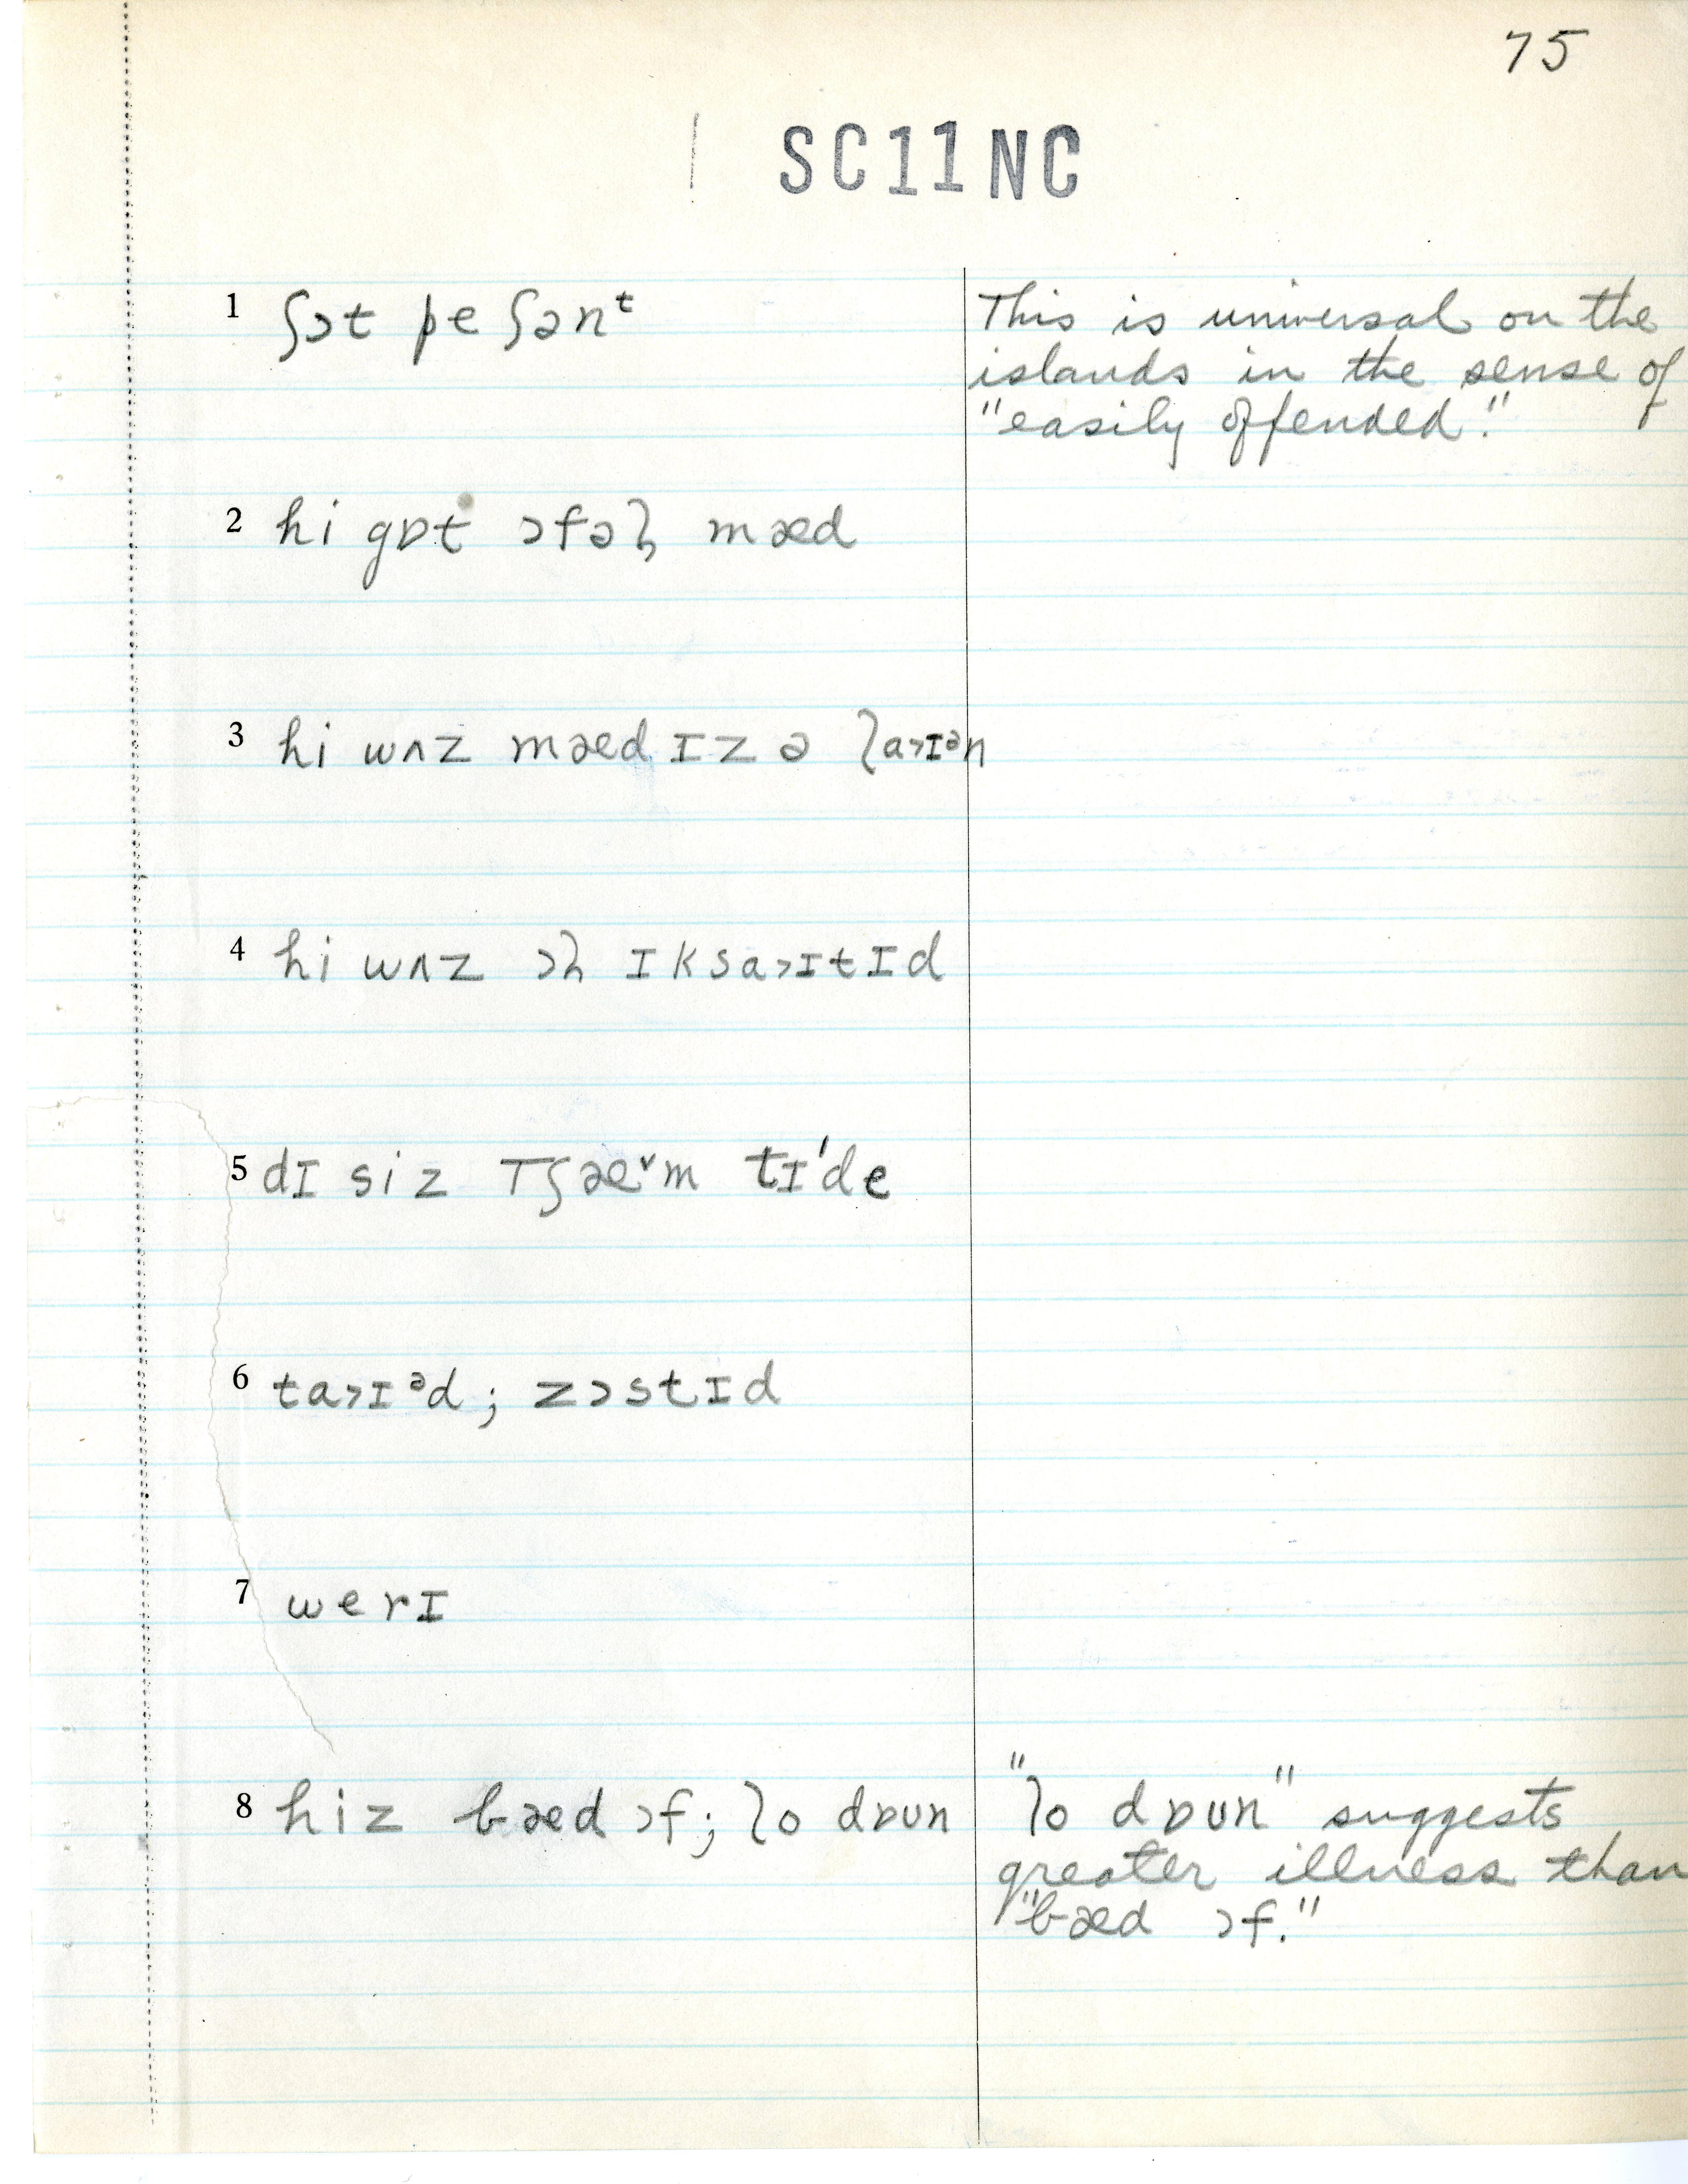 75
SC11NC
1 ʃɔt peʃənᵗ
This is universal on the
islands in the sense of
"easily offended."
2 hi gɒt ɔfəɫ mæd
3 hi wʌz mæd ɪz ə la˃ɪᵊn
4 hi wʌz ɔɫ ɪksa˃ɪtɪd
5 dɪ siz tʃæ˅m tɪ'de
6 ta˃ɪᵊd; zɔstɪd
7 werɪ
8 hiz bæd ɔf; lo dɒʊn
"lo dɒʊn" suggests
greater illness than
"bæd ɔf."